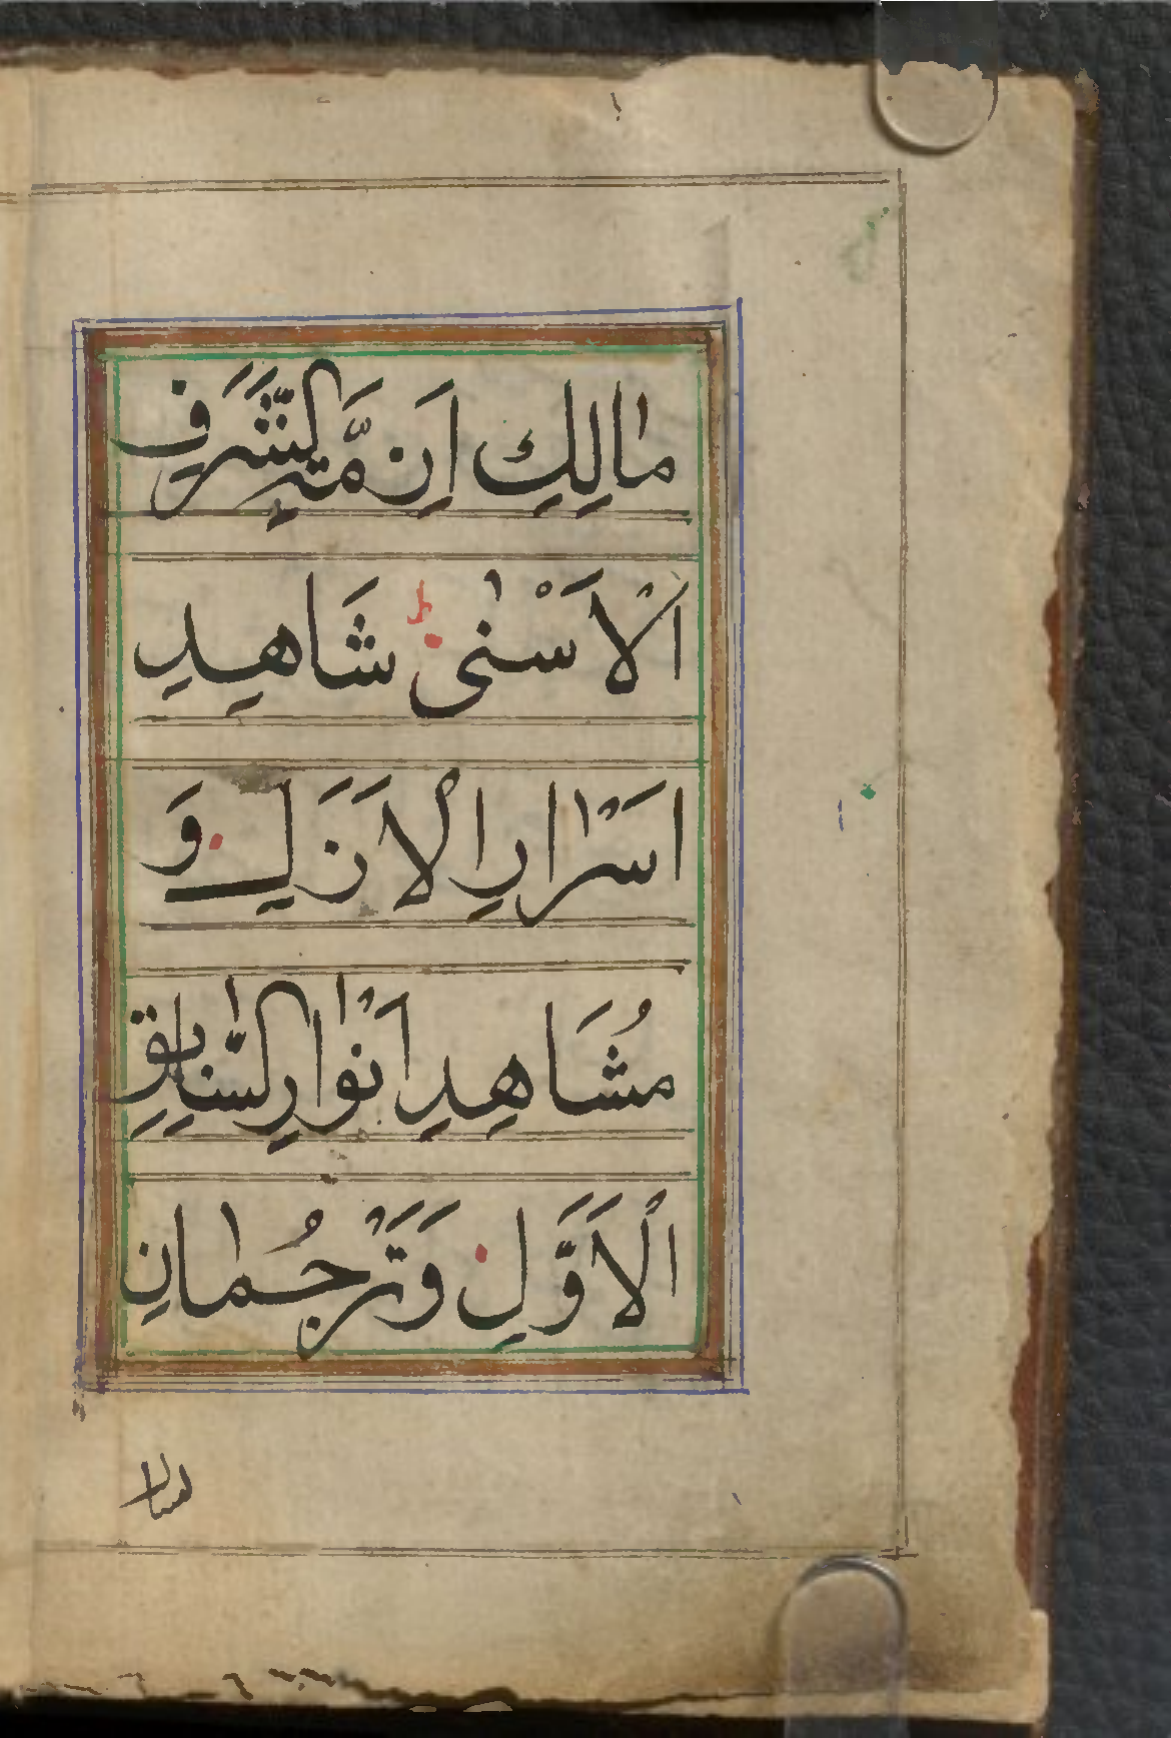 مَالِكِ اَزِمَّةِ الشَّرَفِ
الْاَسْنٰی شَاهِدِ
اَسْرَارِ الْاَزَلِ وَ
مُشَاهِدِ اَنْوَارِ السَّابِقِ
الْاَوَّلِ وَتَرْجُمَانِ
لسان